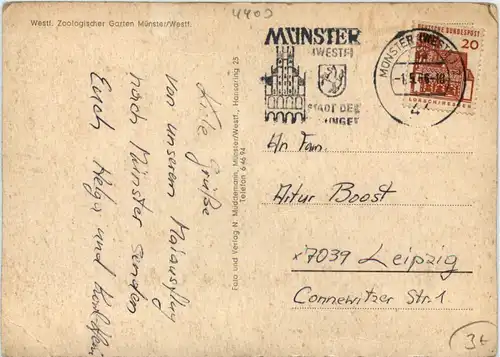 Westf. Zoologischer Garten Münster/Westf.
4400
MÜNSTER
(WESTF)
STADT DER
MÜNSTER (WESTF)
-1.5.66-18
DEUTSCHE BUNDESPOST
20
LORSCH/HESSEN
Liebe Grüße
von unserem Maiausflug
nach Münster senden
Euch Helga und
Foto und Verlag N. Muddemann, Münster/Westf., Hansaring 23
Telefon 6 46 94
An Fam.
Artur Boost
x7039 Leipzig
Connewitzer Str. 1
3t